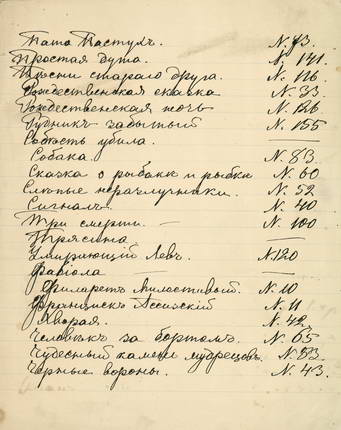 Папа Пастухъ. N. 73.
Простая душа. N. 141.
Пѣсни стараго друга. N. 116.
Рождественская сказка N. 33.
Рождественская ночь N. 126
Рудникъ забытый N. 155
Совѣсть убила. —
Собака. N. 83.
Сказка о рыбакѣ и рыбкѣ N. 60
Слѣпые неразлучники. N. 52.
Сигналъ. N. 40
Три смерти. — N. 100
Трясина —
Умирающій Левъ. N. 120
Фабіола — —
Филаретъ Милостивый. N. 10
Францискъ Ассизскій N. 11
Хворая. N. 42.
Человѣкъ за бортомъ. N. 65
Чудесный камень мудрецовъ. N. 83
Черные вороны. N. 43.